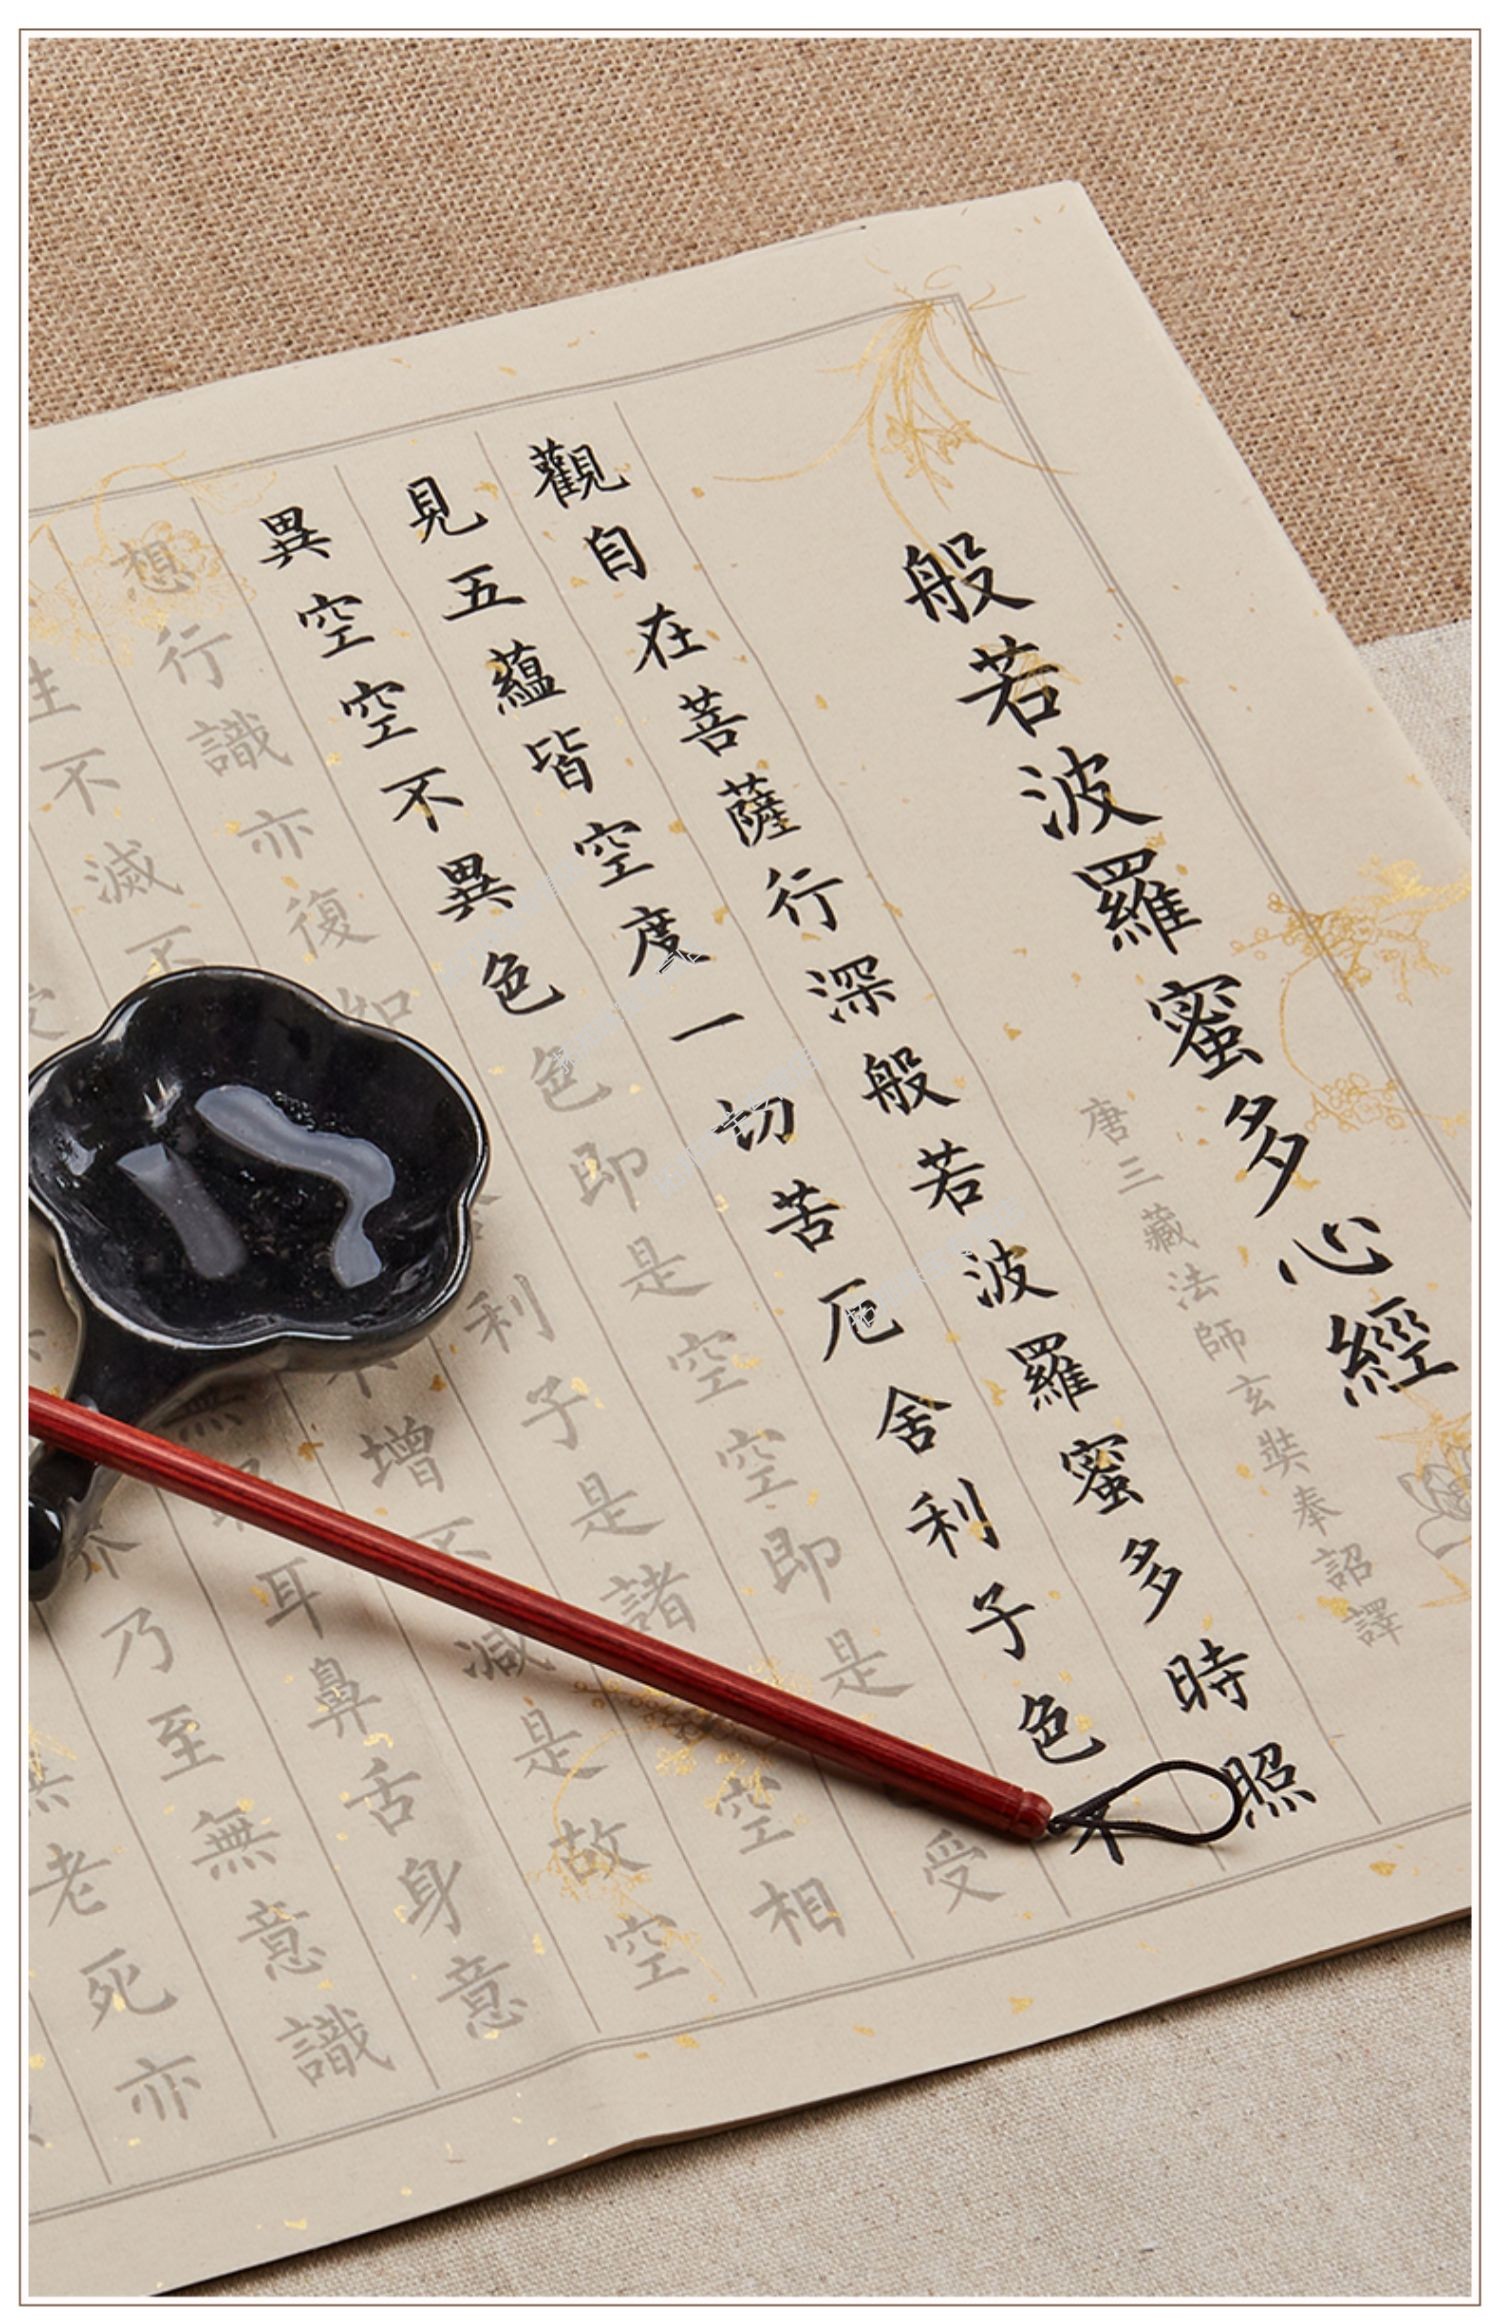 般若波羅蜜多心經
唐三藏法師玄奘奉詔譯
觀自在菩薩行深般若波羅蜜多時照
見五蘊皆空度一切苦厄舍利子色不
異空空不異色色即是空空即是受
想行識亦復如利子是諸空相
生不滅不增不減是故空
無眼耳鼻舌身意
界乃至無意識
無老死亦